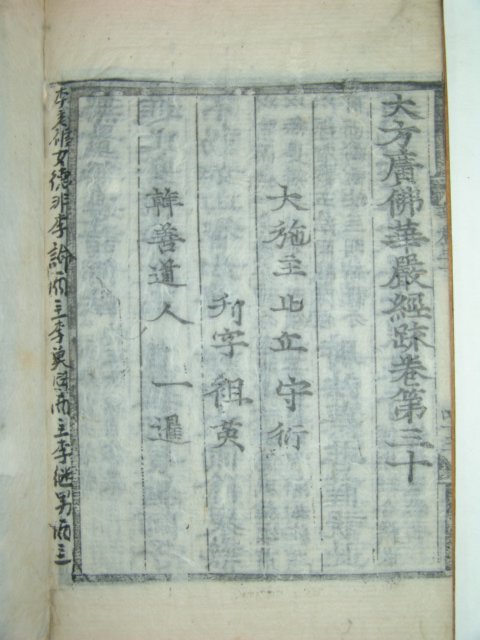 大方廣佛華嚴經疏卷第三十
大施主比丘 守衍
刋字 祖英
幹善道人 一暹
李 女德非李論 两主李莫 两主李継男两主